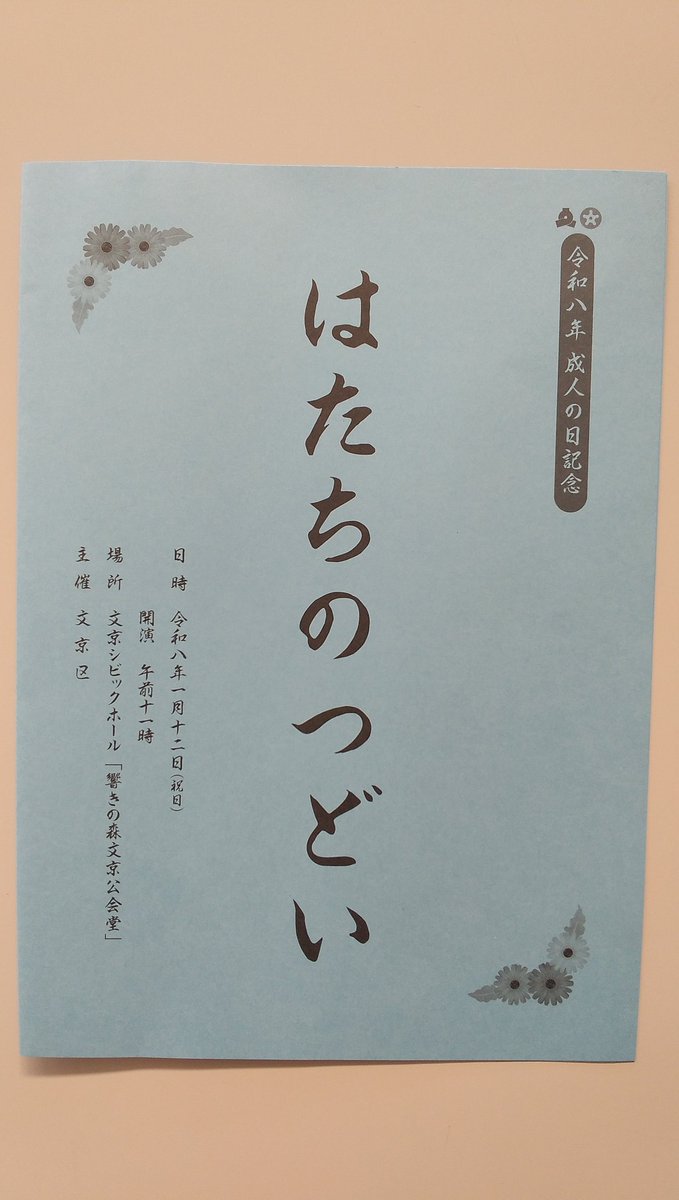 令和八年 成人の日記念
はたちのつどい
日時 令和八年一月十二日(祝日)
開演 午前十一時
場所 文京シビックホール「響きの森文京公会堂」
主催 文京区